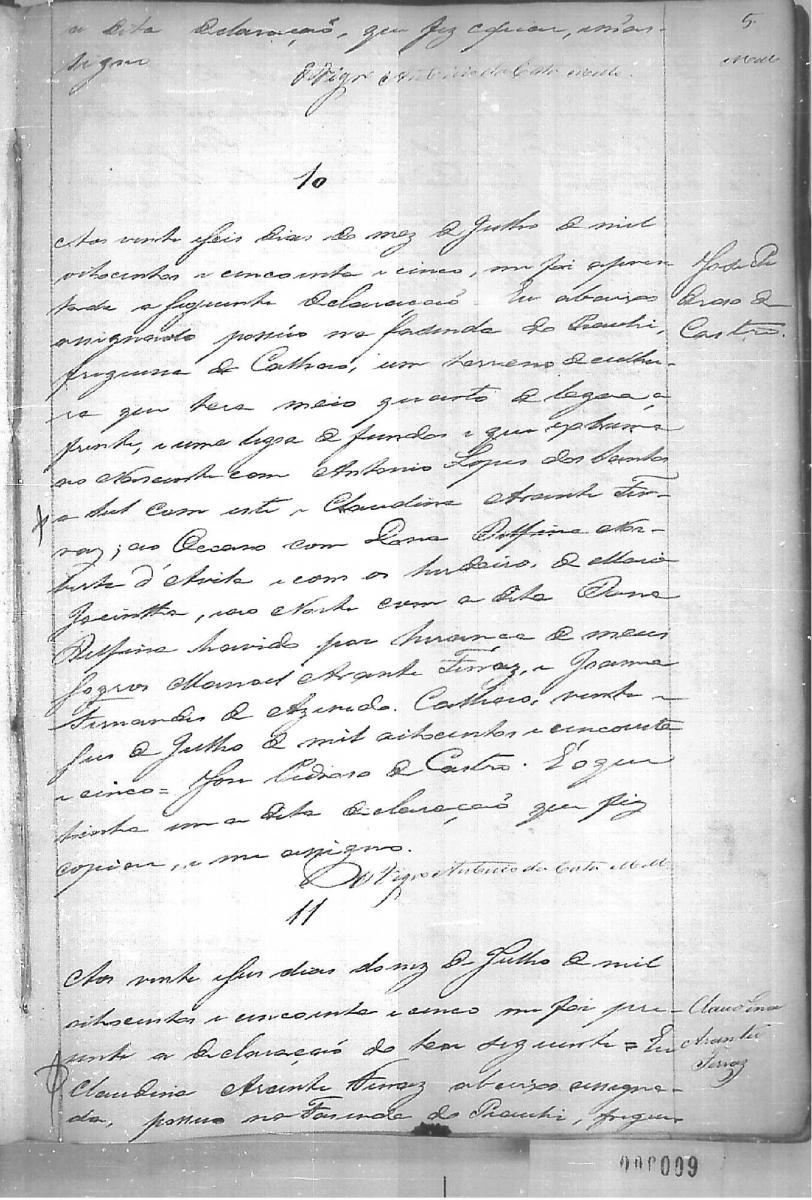 a dita declaração, que fiz copiar, e me as-
signo
O Vigro Antonio da Costa
5
10
Aos vinte e seis dias do mez de Julho de mil
oitocentos e cincoenta e cinco, me foi apresen
tada a seguinte declaração = Eu abaixo
assignado possúo na fazenda do Piauhi,
freguesia de Calháo, um terreno de cultu-
ra que terá meio quarto de legoa de
frente, e uma legoa de fundos e que extrema
ao Nascente com Antonio Lopes dos Santos
a Sul com este e Claudina Arante Fer-
raz; ao Oceano com Dona Delfina Nor-
berta d'Avila e com os herdeiros de Maria
Jacintha, e ao Norte com a dita Dona
Delfina havido por herança de meus
sogros Manoel Arante Ferraz, e Joanna
Fernandes de Azevedo. Calháo, vinte e
seis de Julho de mil oitocentos e cincoenta
e cinco = José Pedroso de Castro. É o que
tinha em a dita declaração que fiz
copiar, e me assigno.
O Vigro Antonio da Costa
José Pe
droso de
Castro.
11
Aos vinte e seis dias do mez de Julho de mil
oitocentos e cincoenta e cinco me foi pre-
sente a declaração do teor seguinte = Eu
Claudina Arante Ferraz abaixo assigna-
da, possuo na Fazenda do Piauhi, fregue-
Claudina
Arante
Ferraz
000009